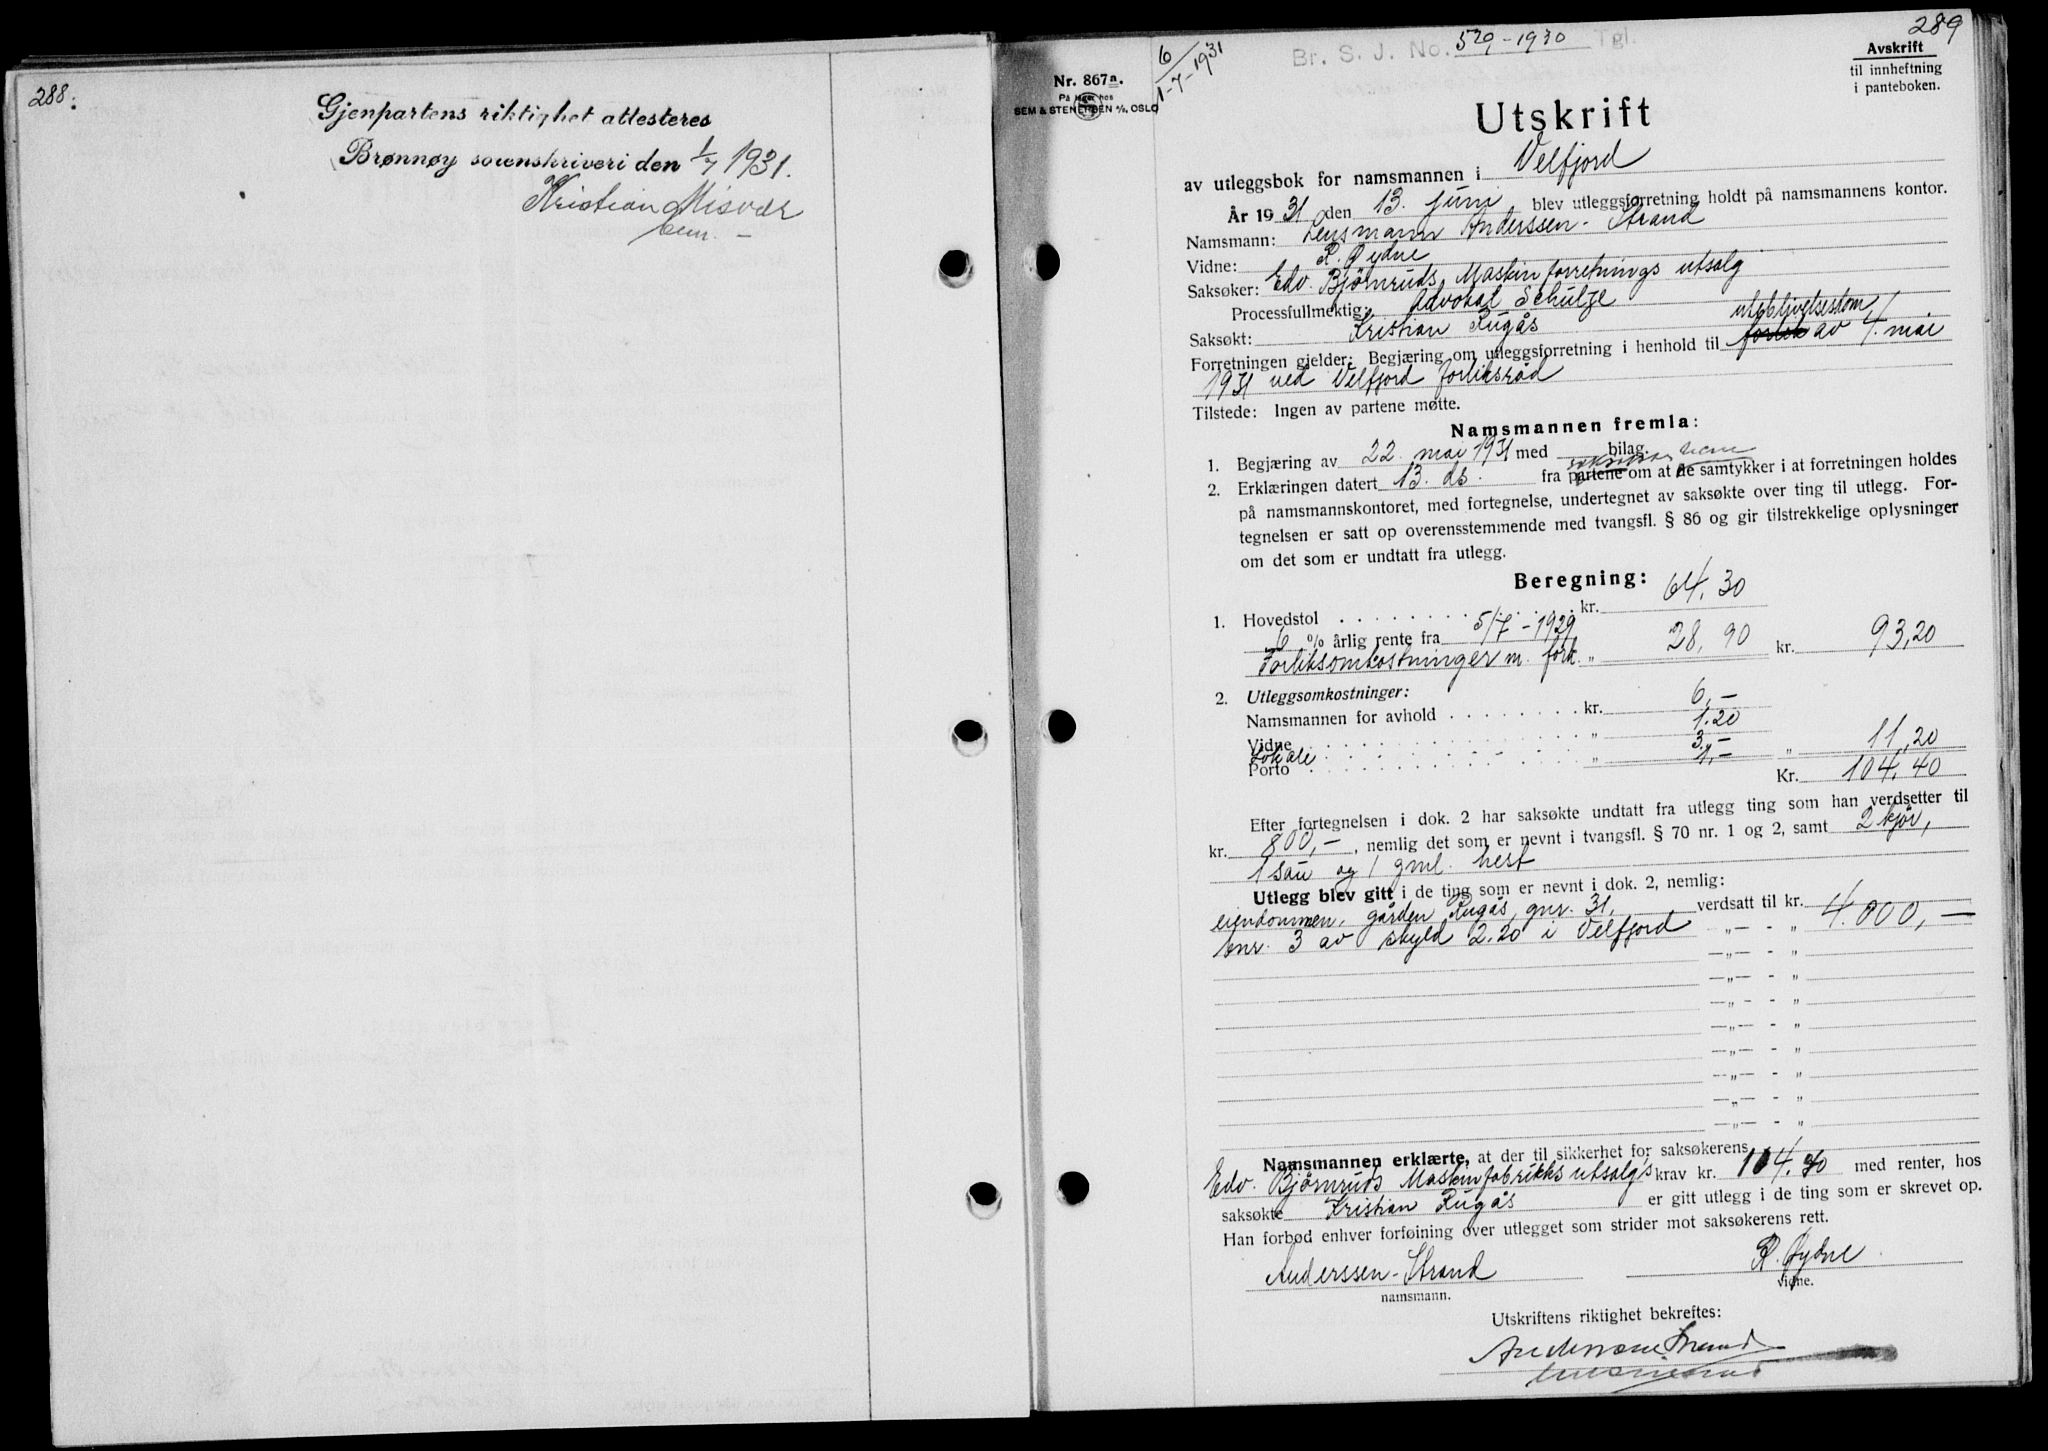 288.
Gjenpartens riktighet attesteres
Brønnøy sorenskriveri den 1/7 1931.
Kristian Misvær
289
Avskrift
til innheftning
i panteboken.
Nr. 867a.
På lager hos
SEM & STENERSEN A/S, OSLO
6/1-7-1931
Br. S. J. No. 529-1930 Tgl.
Utskrift
av utleggsbok for namsmannen i Velfjord
År 1931 den 13. juni blev utleggsforretning holdt på namsmannens kontor.
Namsmann: Lensmann Anderssen-Strand
Vidne: R. Øydne
Saksøker: Edv. Bjørnruds Maskinforretnings utsalg
Processfullmektig: Advokat Schulze
Saksøkt: Kristian Rugås
uteblivelsesdom
Forretningen gjelder: Begjæring om utleggsforretning i henhold til forlik av 4. mai
1931 ved Velfjord forliksråd
Tilstede: Ingen av partene møtte.
Namsmannen fremla:
1. Begjæring av 22. mai 1931 med bilag.
2. Erklæringen datert 13. ds. fra partene om at de samtykker i at forretningen holdes
på namsmannskontoret, med fortegnelse, undertegnet av saksøkte over ting til utlegg. For-
tegnelsen er satt op overensstemmende med tvangsfl. § 86 og gir tilstrekkelige oplysninger
om det som er undtatt fra utlegg.
Beregning:
1. Hovedstol kr. 64,30
6 % årlig rente fra 5/7-1929
Forliksomkostninger m. fork. „ 28,90 kr. 93,20
2. Utleggsomkostninger:
Namsmannen for avhold kr. 6,-
Vidne „ 1.20
Lokale 3,-
Porto „ 1,- „ 11,20
Kr. 104,40
Efter fortegnelsen i dok. 2 har saksøkte undtatt fra utlegg ting som han verdsetter til
kr. 800,-, nemlig det som er nevnt i tvangsfl. § 70 nr. 1 og 2, samt 2 kjør,
1 sau og 1 gml. hest
Utlegg blev gitt i de ting som er nevnt i dok. 2, nemlig:
eiendommen, gården Rugås, gnr. 31, verdsatt til kr.
bnr. 3 av skyld 2.20 i Velfjord —„— - „ 4.000,-
—„— - „
—„— - „
—„— - „
—„— - „
—„— - „
—„— - „
—„— - „
—„— - „
Namsmannen erklærte, at der til sikkerhet for saksøkerens
Edv. Bjørnruds Maskinfabrikks utsalg's krav kr. 104,40 med renter, hos
saksøkte Kristian Rugås er gitt utlegg i de ting som er skrevet op.
Han forbød enhver forføining over utlegget som strider mot saksøkerens rett.
Anderssen-Strand R. Øydne
namsmann. vidne.
Utskriftens riktighet bekreftes:
Anderssen Strand